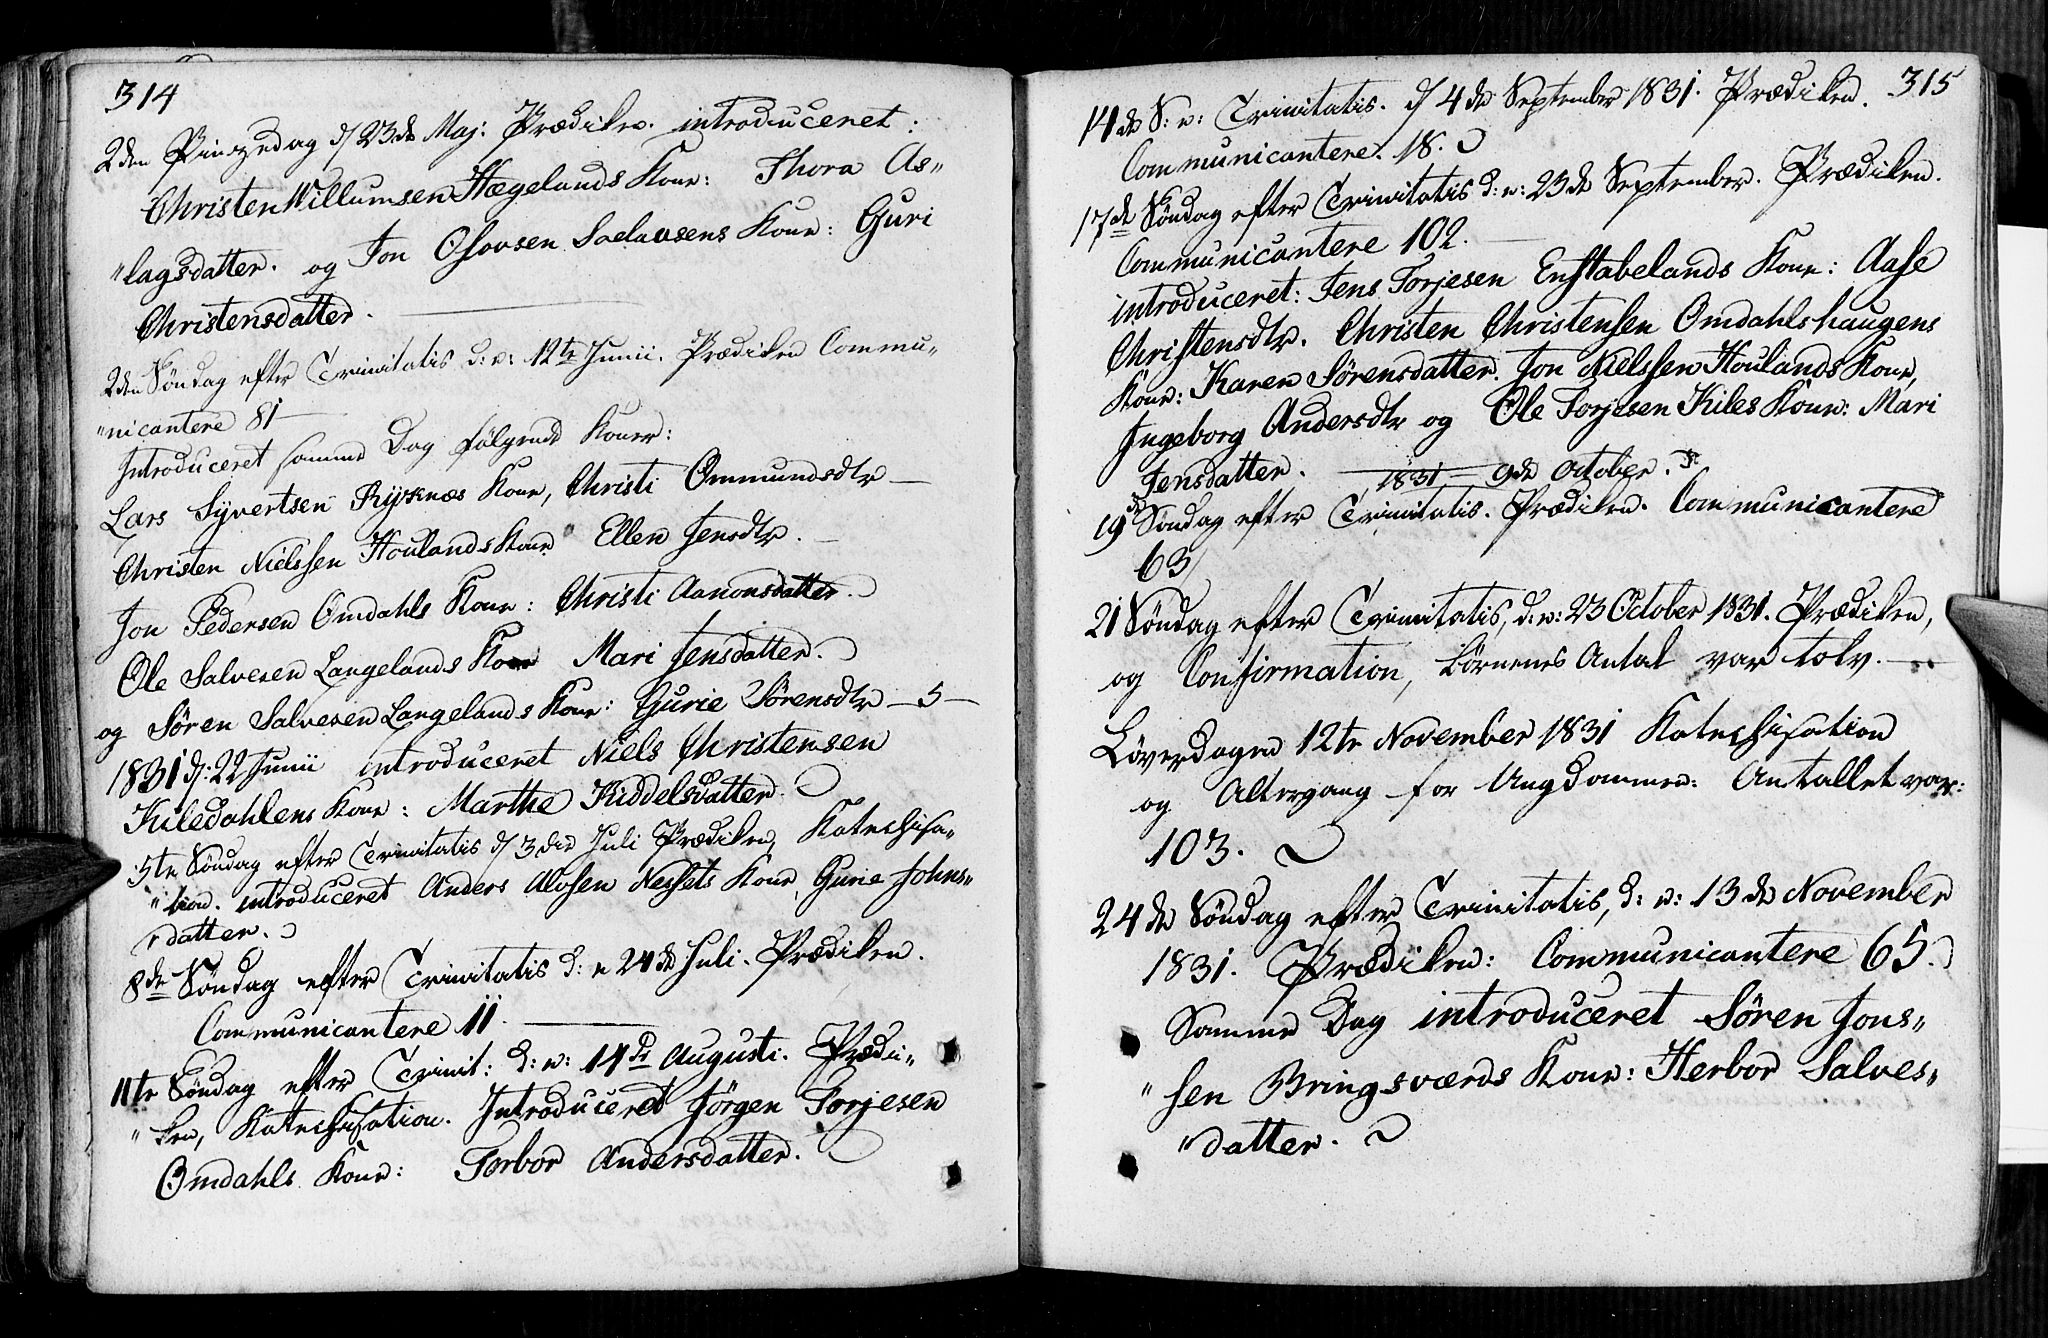 314
2den Pinsedag d/ 23de Maj: Prædiken. introduceret:
Christen Willumsen Hægelands Kone: Thora As„
„lagsdatter. og Jon Olsen Kone: Guri
Christensdatter.
2den Søndag efter Trinitatis d: e: 12te Junii. Prædiken Commu„
„nicantere 81
Introduceret samme Dag følgende Koner:
Lars Syvertsen Kone, Christi Ommundsdtr
Christen Nielssen Houlands Kone Ellen Jensdtr.
Jon Pedersen Omdahls Kone: Christi Aanonsdatter.
Ole Salvesen Langelands Kone Mari Jensdatter.
og Søren Salvesen Langelands Kone: Gurie Sörensdtr – 5 –
1831 d: 22 Junii introduceret Niels Christensen
Kiledahlens Kone: Marthe Kiddelsdatter.
5te Søndag efter Trinitatis d/ 3die Juli Prædiken, Katechisa„
„tion. introduceret Anders Kone, Gurie Johns„
„datter.
8de Søndag efter Trinitatis d: e 24de Juli. Prædiken.
Communicantere 11.
11te Søndag efter Trinit: d: e: 14de Augusti. Prædi„
„ken, Katechisation. Introduceret Jörgen Torjesen
Omdahls Kone: Torbor Andersdatter.
315
14de S: e: Trinitatis. d/ 4de September 1831. Prædiken.
Communicantere. 18.
17de Søndag efter Trinitatis d: e: 23de September. Prædiken.
Communicantere 102.
introduceret: Jens Torjesen Enstabelands Kone: Aase
Christensdtr. Christen Christensen Omdahlshaugens
Kone: Karen Sörensdatter. Jon Nielssen Houlands Kone,
Ingeborg Andersdtr og Ole Torjesen Kiles Kone: Mari
Jensdatter. 1831 – 9de October.
19de Søndag efter Trinitatis. Prædiken. Communicantere
63
21 Søndag efter Trinitatis, d: e: 23 October 1831. Prædiken,
og Confirmation, Børnenes Antal var tolv.
Løverdagen 12te November 1831 Katechisation
og Altergang for Ungdommen: Antallet var:
103.
24de Søndag efter Trinitatis, d: e: 13de November
1831. Prædiken: Communicantere 65.
Samme Dag introduceret Sören Jons„
„sen Bringsværds Kone: Herbor Salves„
„datter.